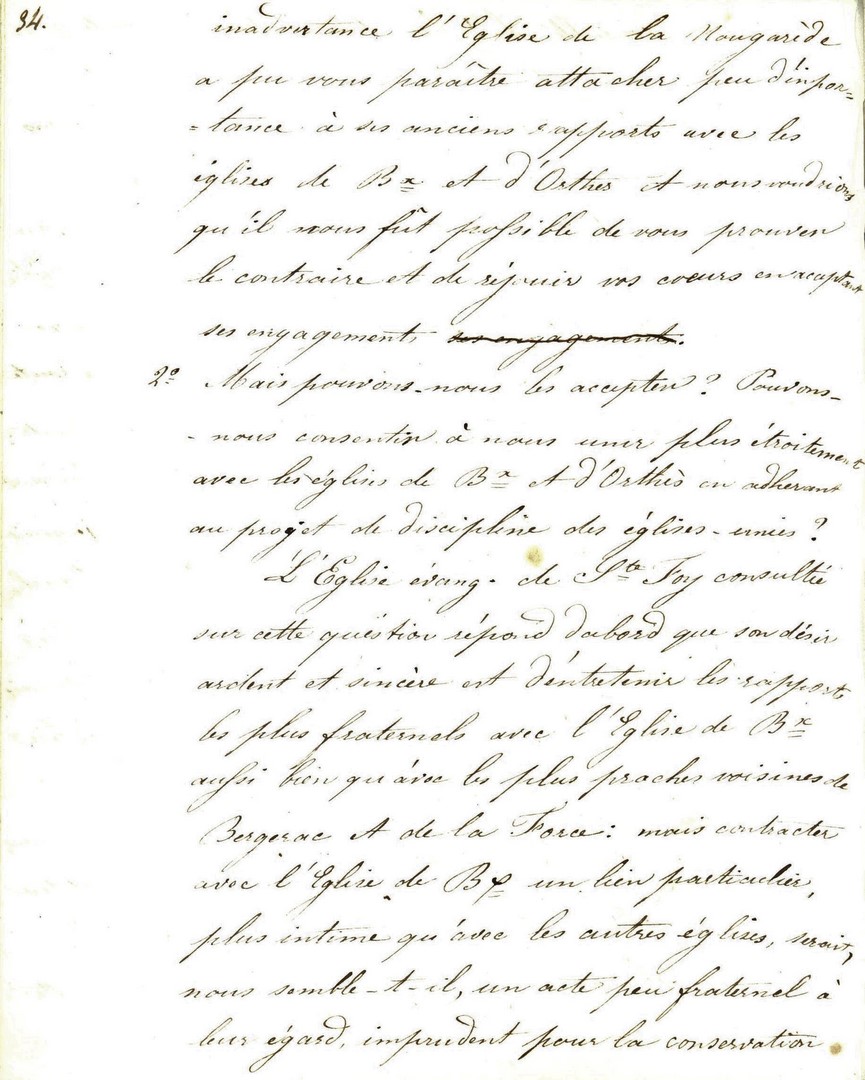 34.
inadvertance l'Eglise de la Nougarède
a pu vous paraître attacher peu d'impor=
=tance à ses anciens rapports avec les
églises de Bx et d'Orthes et nous voudrions
qu'il nous fût possible de vous prouver
le contraire et de réjouir vos coeurs en acceptant
ses engagements ses engagements.
2º Mais pouvons-nous les accepter? Pouvons-
-nous consentir à nous unir plus étroitement
avec les églises de Bx et d'Orthès en adhérant
au projet de discipline des églises-unies?
L'Eglise évang. de Ste Foy consultée
sur cette question répond d'abord que son désir
ardent et sincère est d'entretenir les rapports
les plus fraternels avec l'Eglise de Bx
aussi bien qu'avec les plus proches voisines de
Bergerac et de la Force: mais contracter
avec l'Eglise de Bx un lien particulier,
plus intime qu'avec les autres églises, serait,
nous semble-t-il, un acte peu fraternel à
leur égard, imprudent pour la conservation